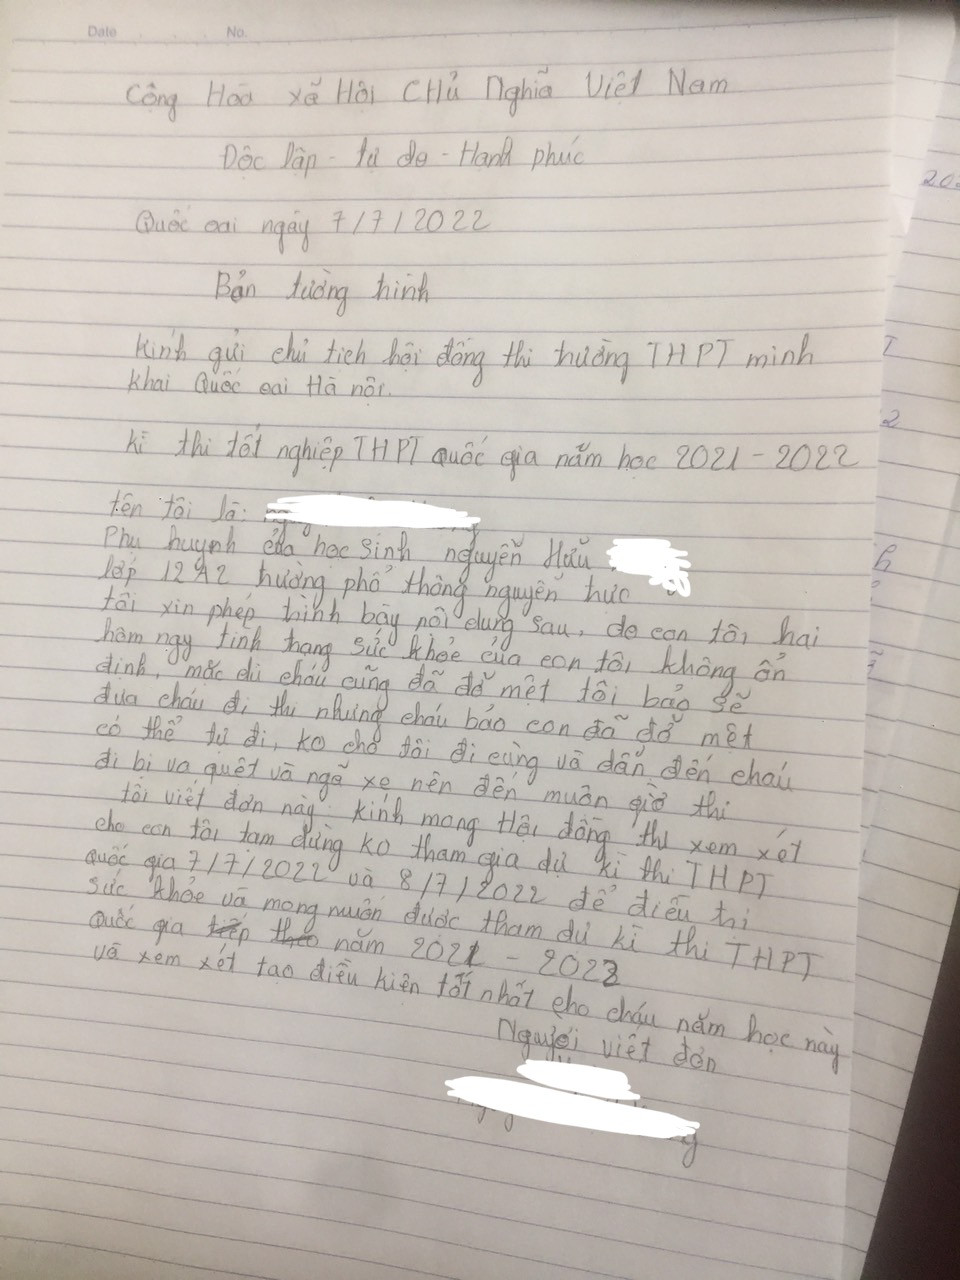 Date No.
Cộng Hòa xã Hội CHủ Nghĩa Việt Nam
Độc lập - tự do - Hạnh phúc
Quốc oai ngày 7/7/2022
Bản tường trình
Kính gửi chủ tịch hội đồng thi trường THPT minh
khai Quốc oai Hà nội.
kì thi tốt nghiệp THPT quốc gia năm học 2021 - 2022
tên tôi là:
Phụ huynh của học sinh nguyễn Hữu
lớp 12A2 trường phổ thông nguyễn trực
tôi xin phép trình bày nội dung sau, do con tôi hai
hôm nay tình trạng sức khỏe của con tôi không ổn
định, mặc dù cháu cũng đã đỡ mệt tôi bảo sẽ
đưa cháu đi thi nhưng cháu bảo con đã đỡ mệt
có thể tự đi, ko cho tôi đi cùng và dẫn đến cháu
đi bị va quệt và ngã xe nên đến muộn giờ thi
tôi viết đơn này kính mong Hội đồng thi xem xét
cho con tôi tạm dừng ko tham gia dự kì thi THPT
quốc gia 7/7/2022 và 8/7/2022 để điều trị
sức khỏe và mong muốn được tham dự kì thi THPT
Quốc gia tiếp theo năm 2021 - 2022
và xem xét tạo điều kiện tốt nhất cho cháu năm học này
Người viết đơn